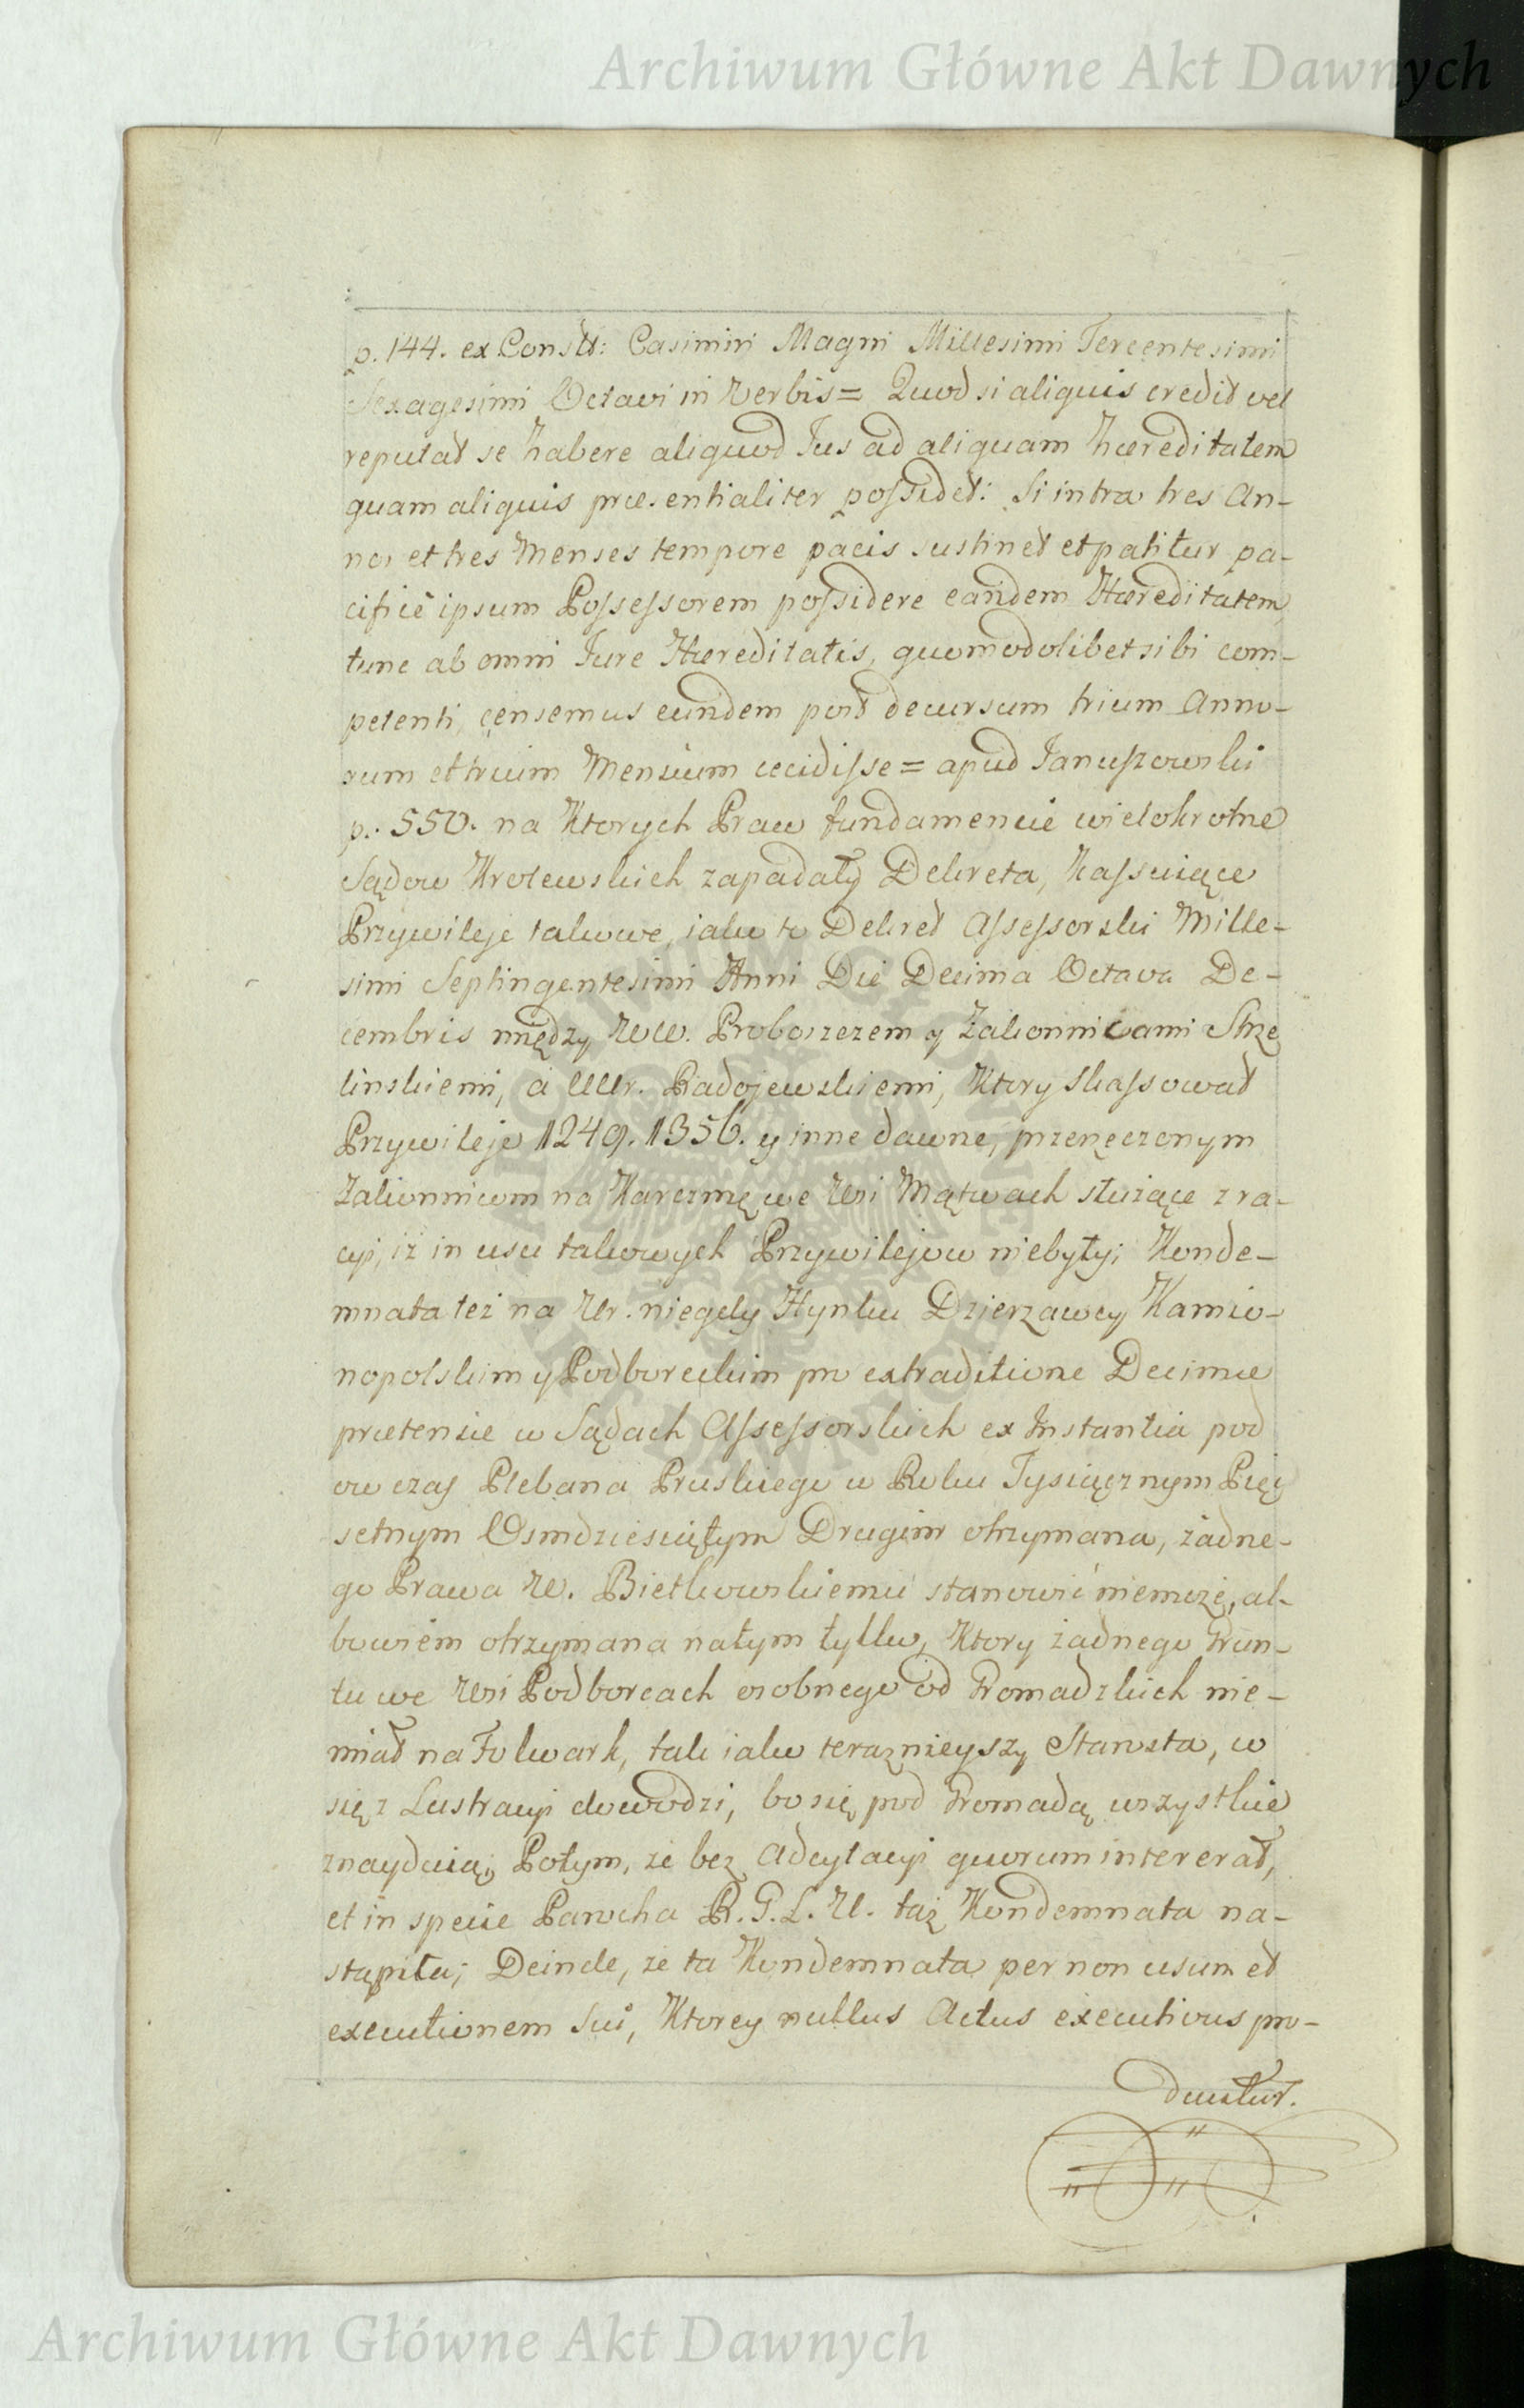 Archiwum Główne Akt Dawnych
p. 144. ex Constt: Casimiri Magni Millesimi Tercentesimi
Sexagesimi Octavi in Verbis = Quod si aliquis credit vel
reputat se habere aliquod Jus ad aliquam hæreditatem
quam aliquis præsentialiter possidet: Si intra tres An-
nos et tres Menses tempore pacis sustinet et patitur pa-
cifice ipsum Possessorem possidere eandem Hæreditatem,
tunc ab omni Jure Hæreditatis, quomodolibet sibi com-
petenti, censemus eundem post decursum trium Anno-
rum et trium Mensium cecidisse = apud Januszowski
p. 550. na Ktorych Praw fundamencie wielokrotne
Sądow Krolewskich zapadały Dekreta, Kassuiące
Przywileje takowe, iako to Dekret Assessorski Mille-
simi Septingentesimi Anni Die Decima Octava De-
cembris między WW. Proboszczem y Zakonnicami Strze
linskiemi, a UUr. Radojewskiemi, Ktory skassował
Przywileje 1249. 1356. y inne dawne, przerzeczonym
Zakonnicom na Karczmę we Wsi Mątwach służące z ra-
cyi, iż in usu takowych Przywilejow niebyły; Konde-
mnata też na Ur. niegdy Hynku Dzierzawcy Kamio-
nopolskim y Podboreckim pro extraditione Decimæ
prætensæ w Sądach Assessorskich ex Instantia pod
ow czas Plebana Pruskiego w Roku Tysiącznym Pięć
setnym Osmdziesiątym Drugim otrzymana, żadne-
go Prawa W. Bietkowskiemu stanowić niemoże, al-
bowiem otrzymana na tym tylko, Ktory żadnego Grun-
tu we Wsi Podborcach osobnego od Gromadzkich nie-
miał na Folwark, tak iako teraznieyszy Starosta, co
się z Lustracyi dowodzi, bo się pod Gromadą wszystkie
znayduią; Potym, że bez Adcytacyi quorum intererat,
et in specie Parocha R. G. L. U. taż Kondemnata na-
stąpiła; Deinde, że ta Kondemnata per non usum et
executionem sui, Ktorey nullus Actus executivus pro-
ducitur.
Archiwum Główne Akt Dawnych